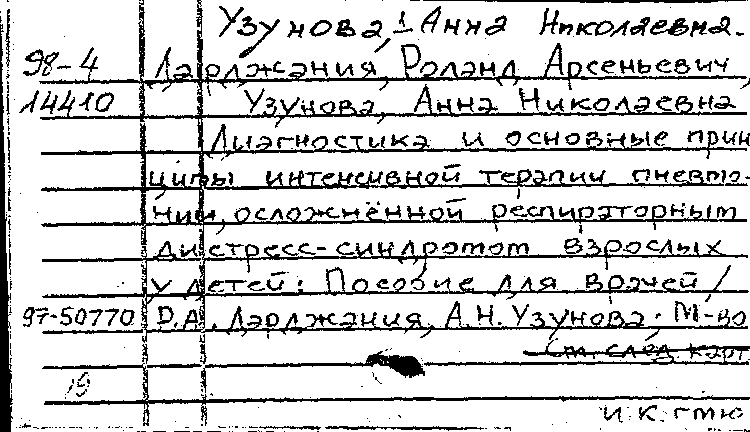 Узунова, Анна Николаевна.
98-4 Дэрджания, Роланд Арсеньевич,
14410 Узунова, Анна Николаевна
Диагностика и основные прин
ципы интенсивной терапии пневмо-
нии, осложнённой респираторным
дистресс-синдромом взрослых
у детей: Пособие для врачей /
97-50770 Р.А. Дэрджания, А.Н. Узунова; М-во
См. след. карт
19